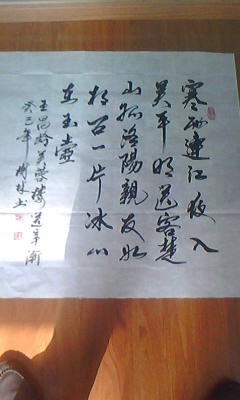 寒雨連江夜入
吴平明送客楚
山孤洛陽親友如
相问一片冰心
在玉壺
王昌龄芙蓉樓送辛漸
癸巳年林书